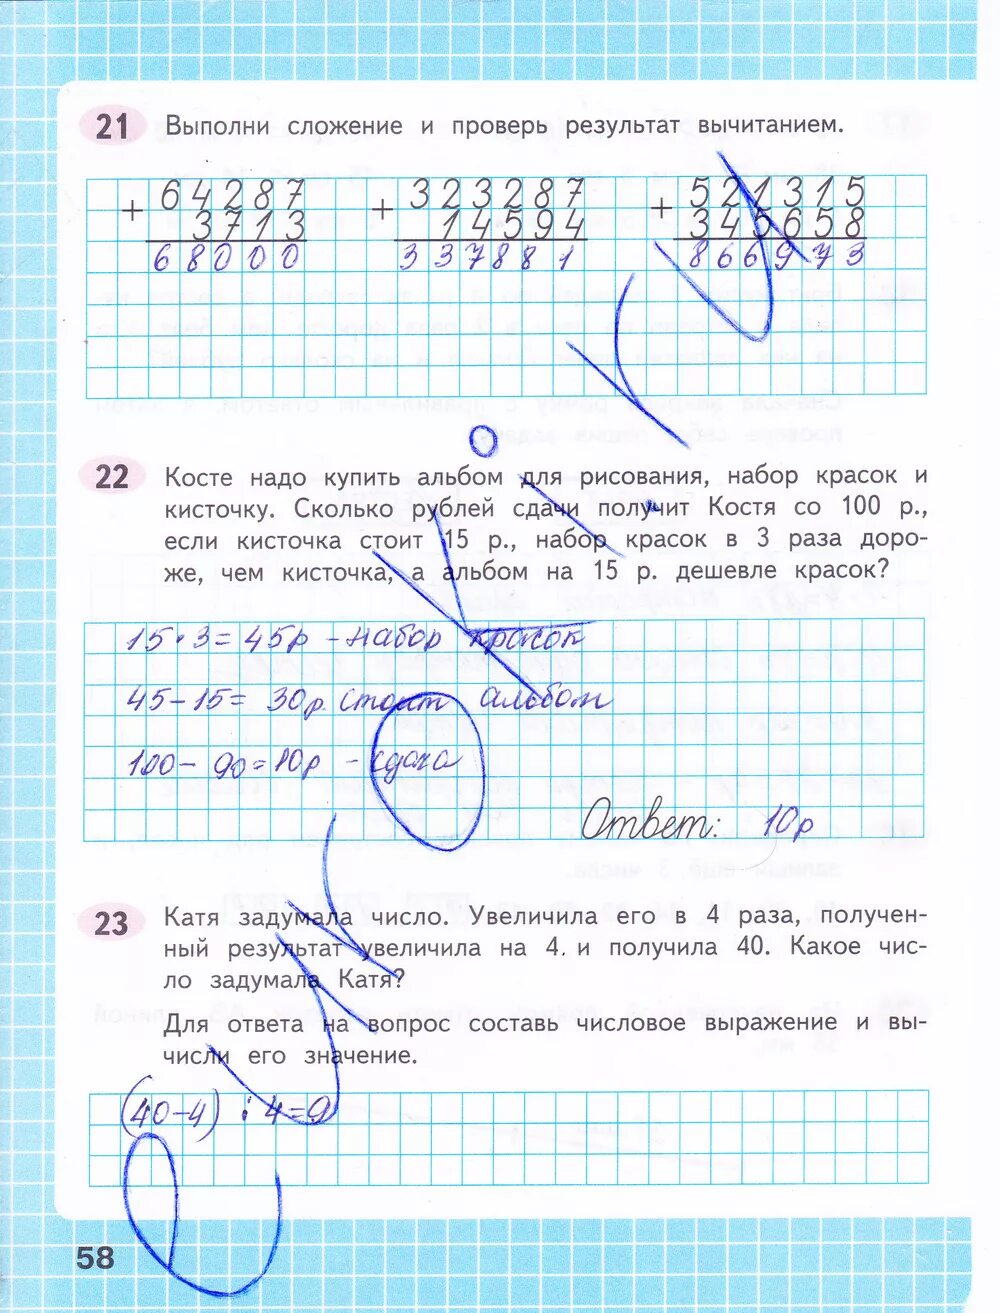 21 Выполни сложение и проверь результат вычитанием.
+ 64287 + 323287 + 521315
3713 14594 345658
68000 337881 866973
22 Косте надо купить альбом для рисования, набор красок и
кисточку. Сколько рублей сдачи получит Костя со 100 р.,
если кисточка стоит 15 р., набор красок в 3 раза доро-
же, чем кисточка, а альбом на 15 р. дешевле красок?
15·3=45р - набор красок
45-15= 30р. стоит альбом
100-90=10р - сдача
Ответ: 10р
23 Катя задумала число. Увеличила его в 4 раза, получен-
ный результат увеличила на 4, и получила 40. Какое чис-
ло задумала Катя?
Для ответа на вопрос составь числовое выражение и вы-
числи его значение.
(40-4) : 4=9
58